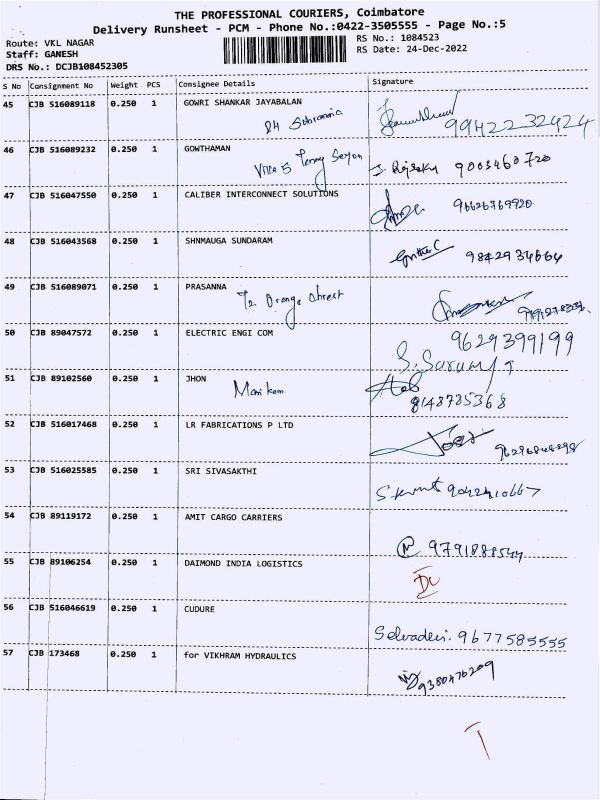 THE PROFESSIONAL COURIERS, Coimbatore
Delivery Runsheet - PCM - Phone No.:0422-3505555 - Page No.:5
Route: VKL NAGAR
RS No.: 1084523
Staff: GANESH
RS Date: 24-Dec-2022
DRS No.: DCJB108452305
S No Consignment No Weight PCS Consignee Details Signature
45 CJB 516089118 0.250 1 GOWRI SHANKAR JAYABALAN
99422 32424
46 CJB 516089232 0.250 1 GOWTHAMAN
Villa 5
9003460720
47 CJB 516047550 0.250 1 CALIBER INTERCONNECT SOLUTIONS
96626769920
48 CJB 516043568 0.250 1 SHNMAUGA SUNDARAM
9842934664
49 CJB 516089071 0.250 1 PRASANNA
Orange street
50 CJB 89047572 0.250 1 ELECTRIC ENGI COM
9629399199
51 CJB 89102560 0.250 1 JHON
Manikam
8148785368
52 CJB 516017468 0.250 1 LR FABRICATIONS P LTD
53 CJB 516025585 0.250 1 SRI SIVASAKTHI
54 CJB 89119172 0.250 1 AMIT CARGO CARRIERS
9791888544
55 CJB 89106254 0.250 1 DAIMOND INDIA LOGISTICS
56 CJB 516046619 0.250 1 CUDURE
Selvadevi. 9677585555
57 CJB 173468 0.250 1 for VIKHRAM HYDRAULICS
9380476209